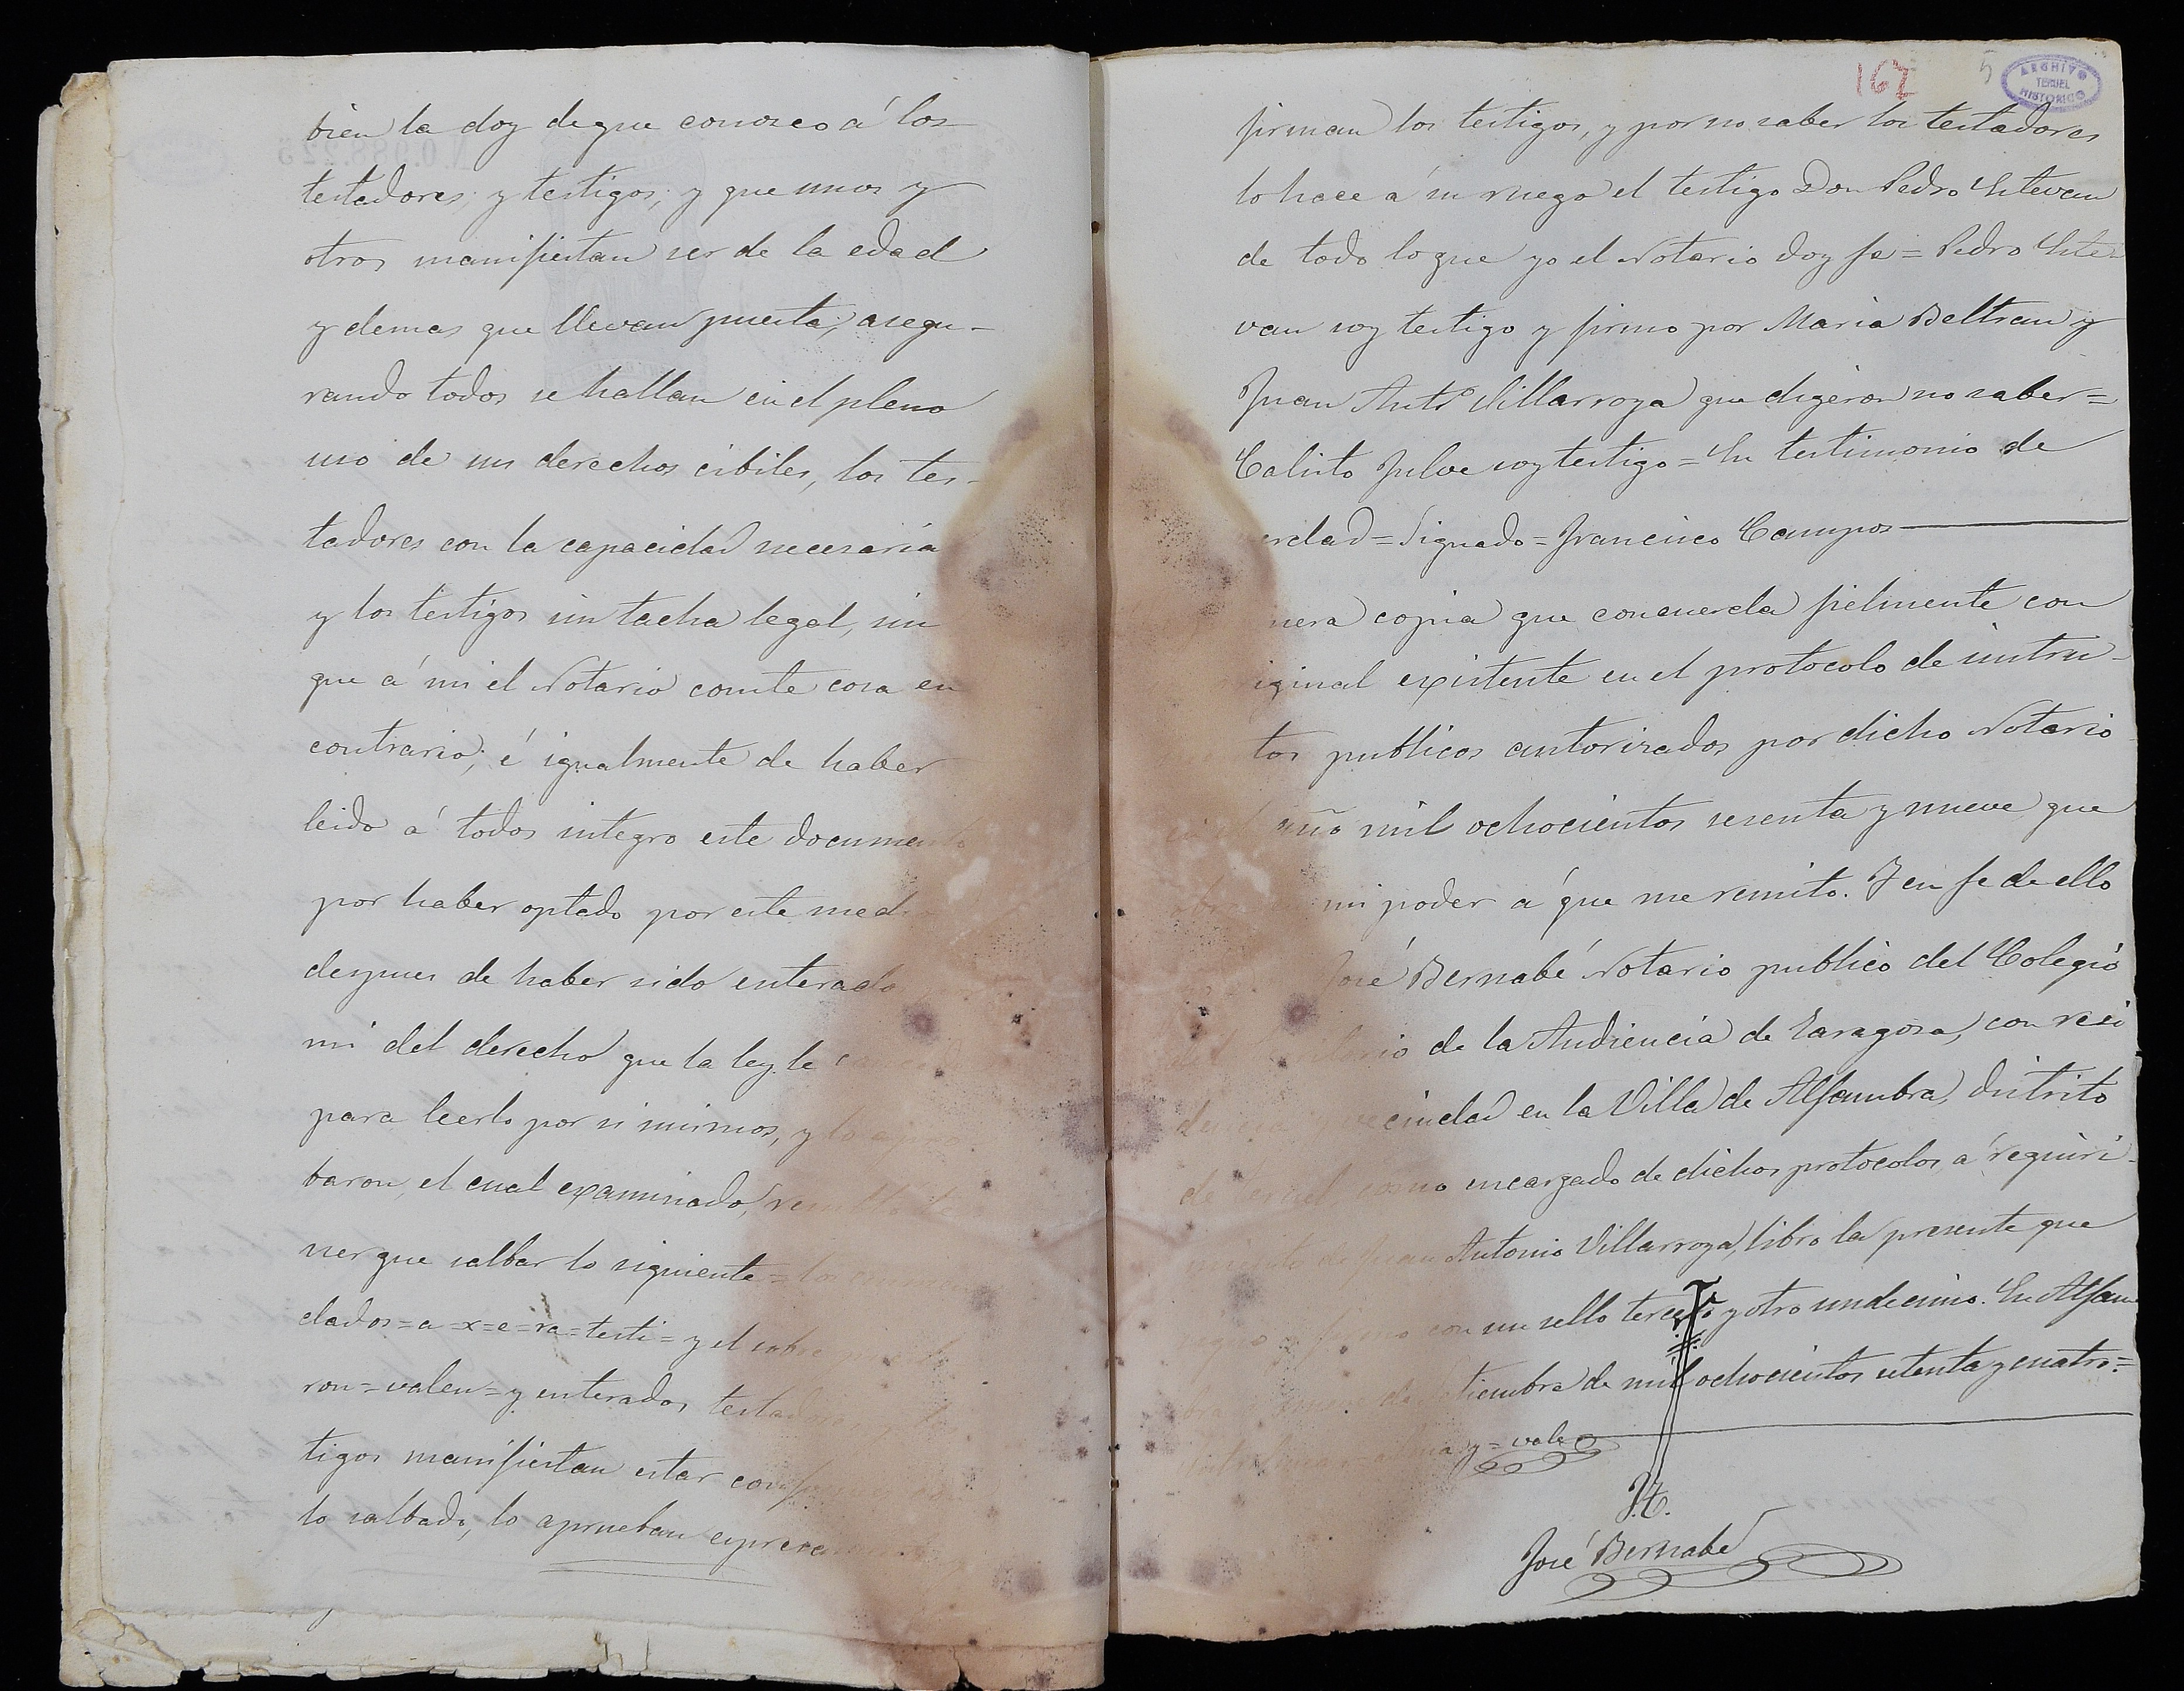 bien la doy de que conosco á los
testadores, y testigos, y que unos y
otros manifiestan ser de la edad
y demas que llevan puesta, asegu-
rando todos se hallan en el pleno
uso de sus derechos cibiles, los tes-
tadores con la capacidad necesaria
y los testigos sin tacha legal, sin
que á mi el Notario conste cosa en
contrario; é igualmente de haber
leido á todos integro este documento
por haber optado por este medio
despues de haber sido enterado
mi del derecho que la ley le
para leerlo por si mismos, y lo apro
baron, el cual examinado, resulto te
ner que salbar lo siguiente = los enmen
dados = a = x = e = ra = testi = y el sobre
ron = valen = y enterados testadores y
tigos manifiestan estar conformes
lo salbado, lo aprueban
162 5
ARCHIVO
TERUEL
HISTORICO
firman los testigos, y por no saber los testadores
lo hace á su ruego el testigo Don Pedro Estevan
de todo lo que yo el Notario doy fe = Pedro Este-
van soy testigo y firmo por Maria Beltran y
Juan Antº Villarroya que digeron no saber =
Calisto Julve soy testigo = En testimonio de
erdad = Signado = Francisco Campos
mera copia que concuerda fielmente con
iginal existente en el protocolo de instru-
tos publicos autorizados por dicho Notario
año mil ochocientos sesenta y nueve que
mi poder á que me remito. Y en fe de ello
José Bernabé Notario publico del Colegio
torio de la Audiencia de Zaragosa, con resi
dencia y vecindad en la Villa de Alfambra, distrito
de Teruel como encargado de dichos protocolos á requiri-
miento de Juan Antonio Villarroya, libro la presente que
signo y firmo con un sello tercero y otro undecimo. En Alfam
bra de Setiembre de mil ochocientos setenta y cuatro =
y = vale
José Bernabé